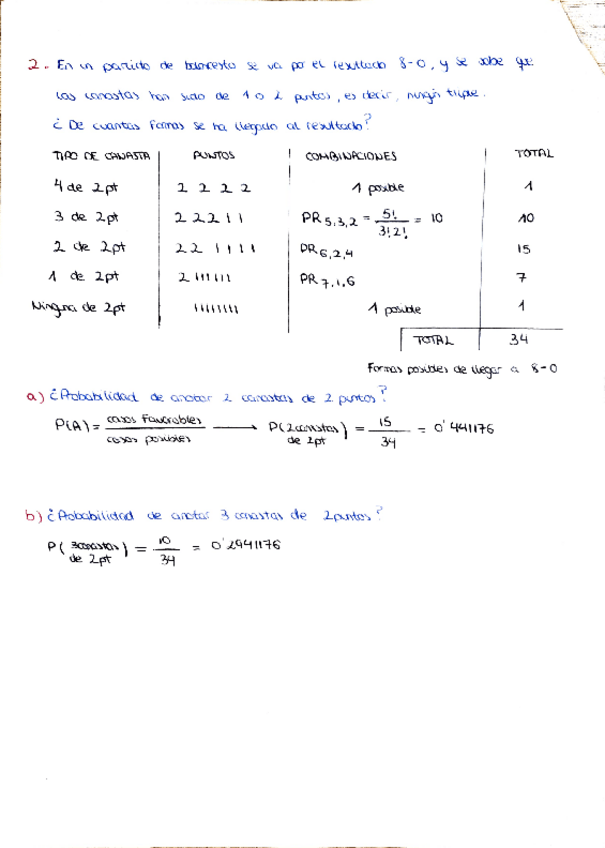 2. En un partido de baloncesto se va por el resultado 8-0, y se sabe que
las canastas han sido de 1 o 2 puntos, es decir, ningún triple.
¿De cuantas formas se ha llegado al resultado?
TIPO DE CANASTA PUNTOS COMBINACIONES TOTAL
4 de 2pt 2 2 2 2 1 posible 1
3 de 2pt 2 2 2 1 1 PR5,3,2 = 5!/3!2! = 10 10
2 de 2pt 2 2 1 1 1 1 PR6,2,4 15
1 de 2pt 2 1 1 1 1 1 1 PR7,1,6 7
Ninguna de 2pt 1 1 1 1 1 1 1 1 1 posible 1
TOTAL 34
Formas posibles de llegar a 8-0
a) ¿Probabilidad de anotar 2 canastas de 2 puntos?
P(A) = casos favorables/casos posibles → P(2 canastas de 2pt) = 15/34 = 0'441176
b) ¿Probabilidad de anotar 3 canastas de 2 puntos?
P(3 canastas de 2pt) = 10/34 = 0'2941176